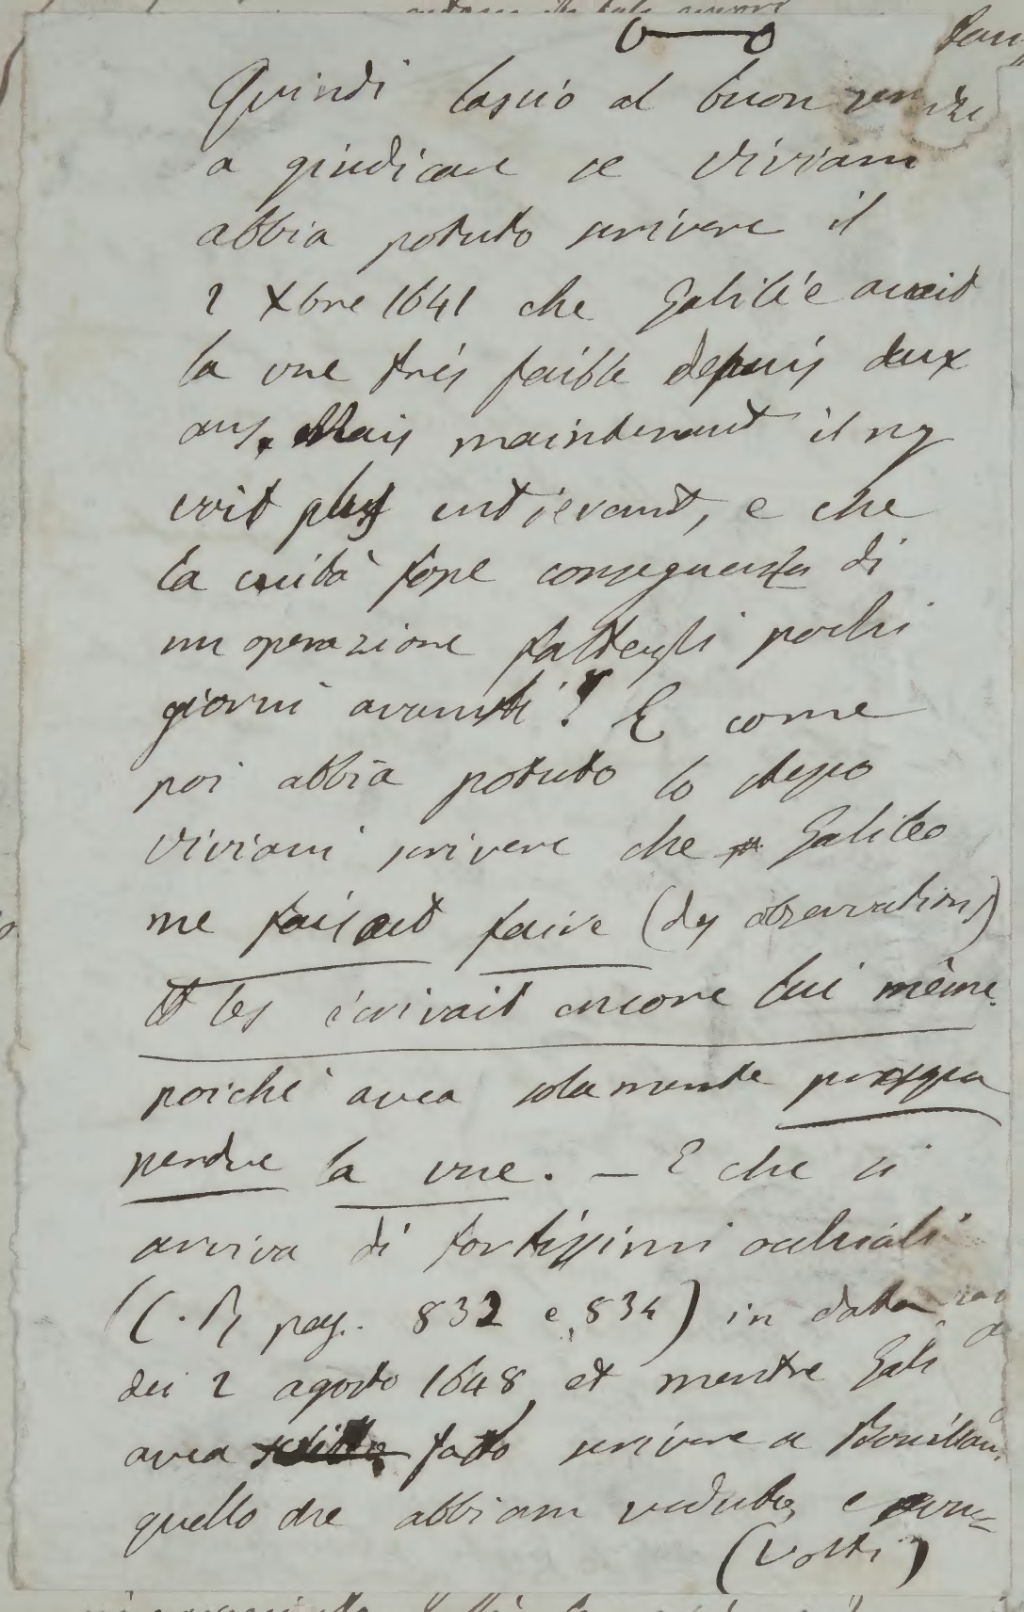 Quindi lascio al buon senso
a giudicare se Viviani
abbia potuto scrivere il
2 Xbre 1641 che Galilée avait
la vue très faible depuis deux
ans. Mais maintenant il ny
voit plus entierement, e che
la cecità fosse conseguenza di
un operazione fattagli pochi
giorni avanti! E come
poi abbia potuto lo stesso
Viviani scrivere che Galileo
me faisait faire (des observations)
et les écrivait encore lui même.
poiché avea solamente presque
perdue la vue. — E che si
serviva di fortissimi occhiali
(C. R, pag. 832 e 834) in data
dei 2 agosto 1648 et mentre Gali
avea fatto scrivere a
quello che abbiam veduto, e
(Volti)